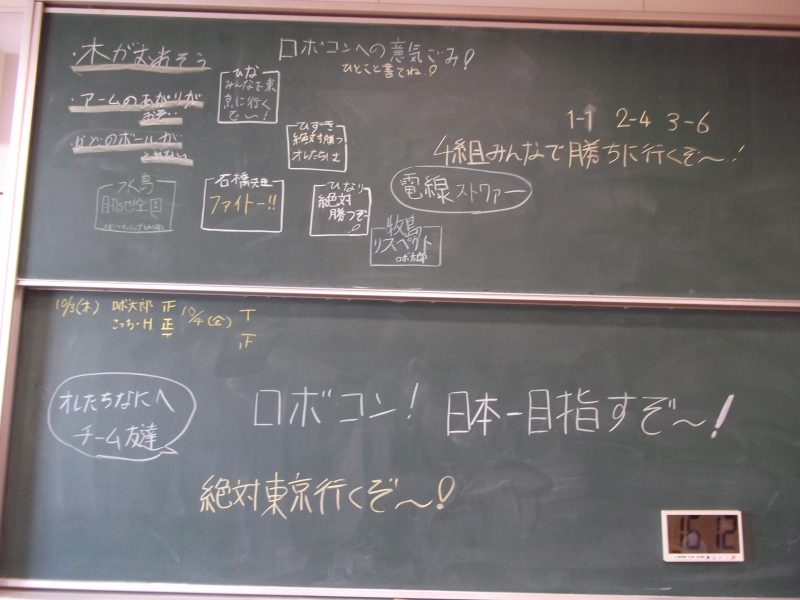 ロボコンへの意気ごみ!
ひとこと書てね!
・木がむおそう
・アームのあがりが
おそい
かどのボールが
とれない
ひな
みんなで東
京に行く
ぞ〜!
ひずき
絶対勝つ
オレたちは
1-1 2-4 3-6
4組みんなで勝ちに行くぞ〜!
水島
目指せ全国
石橋先生
ファイトー!!
ひなり
絶対
勝つぞ!
電線ストワァー
牧島
リスペクト
ロボ太郎
10/3(木) ロボ太郎 正
こっちーH 正
10/4(金) T
正
オレたちなにへ
チーム友達
ロボコン! 日本一目指すぞ〜!
絶対東京行くぞ〜!
16 12